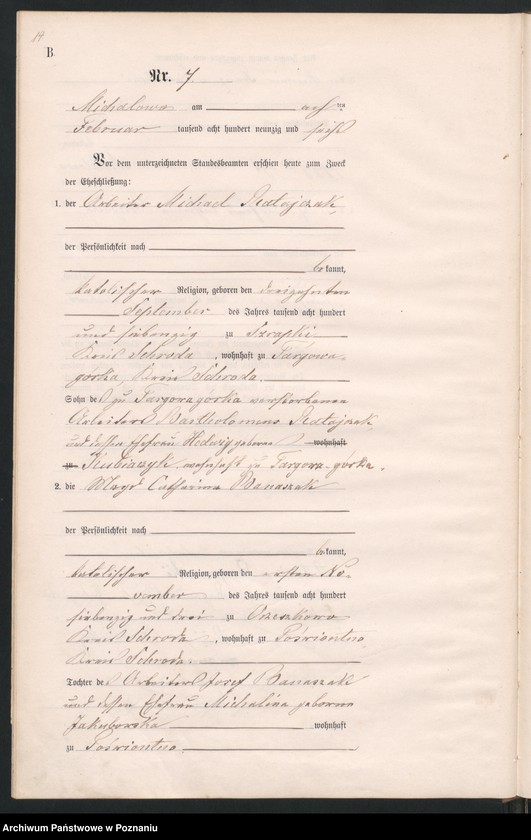 14
B.
Nr. 7
Michalowo am acht ten
Februar tausend acht hundert neunzig und sechs
Vor dem unterzeichneten Standesbeamten erschien heute zum Zweck
der Eheschließung:
1. der Arbeiter Michael Ratajczak
der Persönlichkeit nach
bekannt,
katolischer Religion, geboren den dreizehnten
September des Jahrs tausend acht hundert
und siebenzig zu Szrapki
Kreis Schroda, wohnhaft zu Targowa-
górka, Kreis Schroda.
Sohn des zu Targowagorka verstorbenen
Arbeiters Bartholomeus Ratajczak
und dessen Ehefrau Hedwig geborne wohnhaft
zu Kubiaczyk, wohnhaft zu Targowa górka.
2. die Magd Catharina Banaszak
der Persönlichkeit nach
bekannt,
katolischer Religion, geboren den ersten No-
vember des Jahrs tausend acht hundert
siebenzig und drei zu Orzeszkowo
Kreis Schroda, wohnhaft zu Poświentno
Kreis Schroda.
Tochter des Arbeiters Josef Banaszak
und dessen Ehefrau Michalina geborne
Jakuborska wohnhaft
zu Poświentno
Archiwum Państwowe w Poznaniu